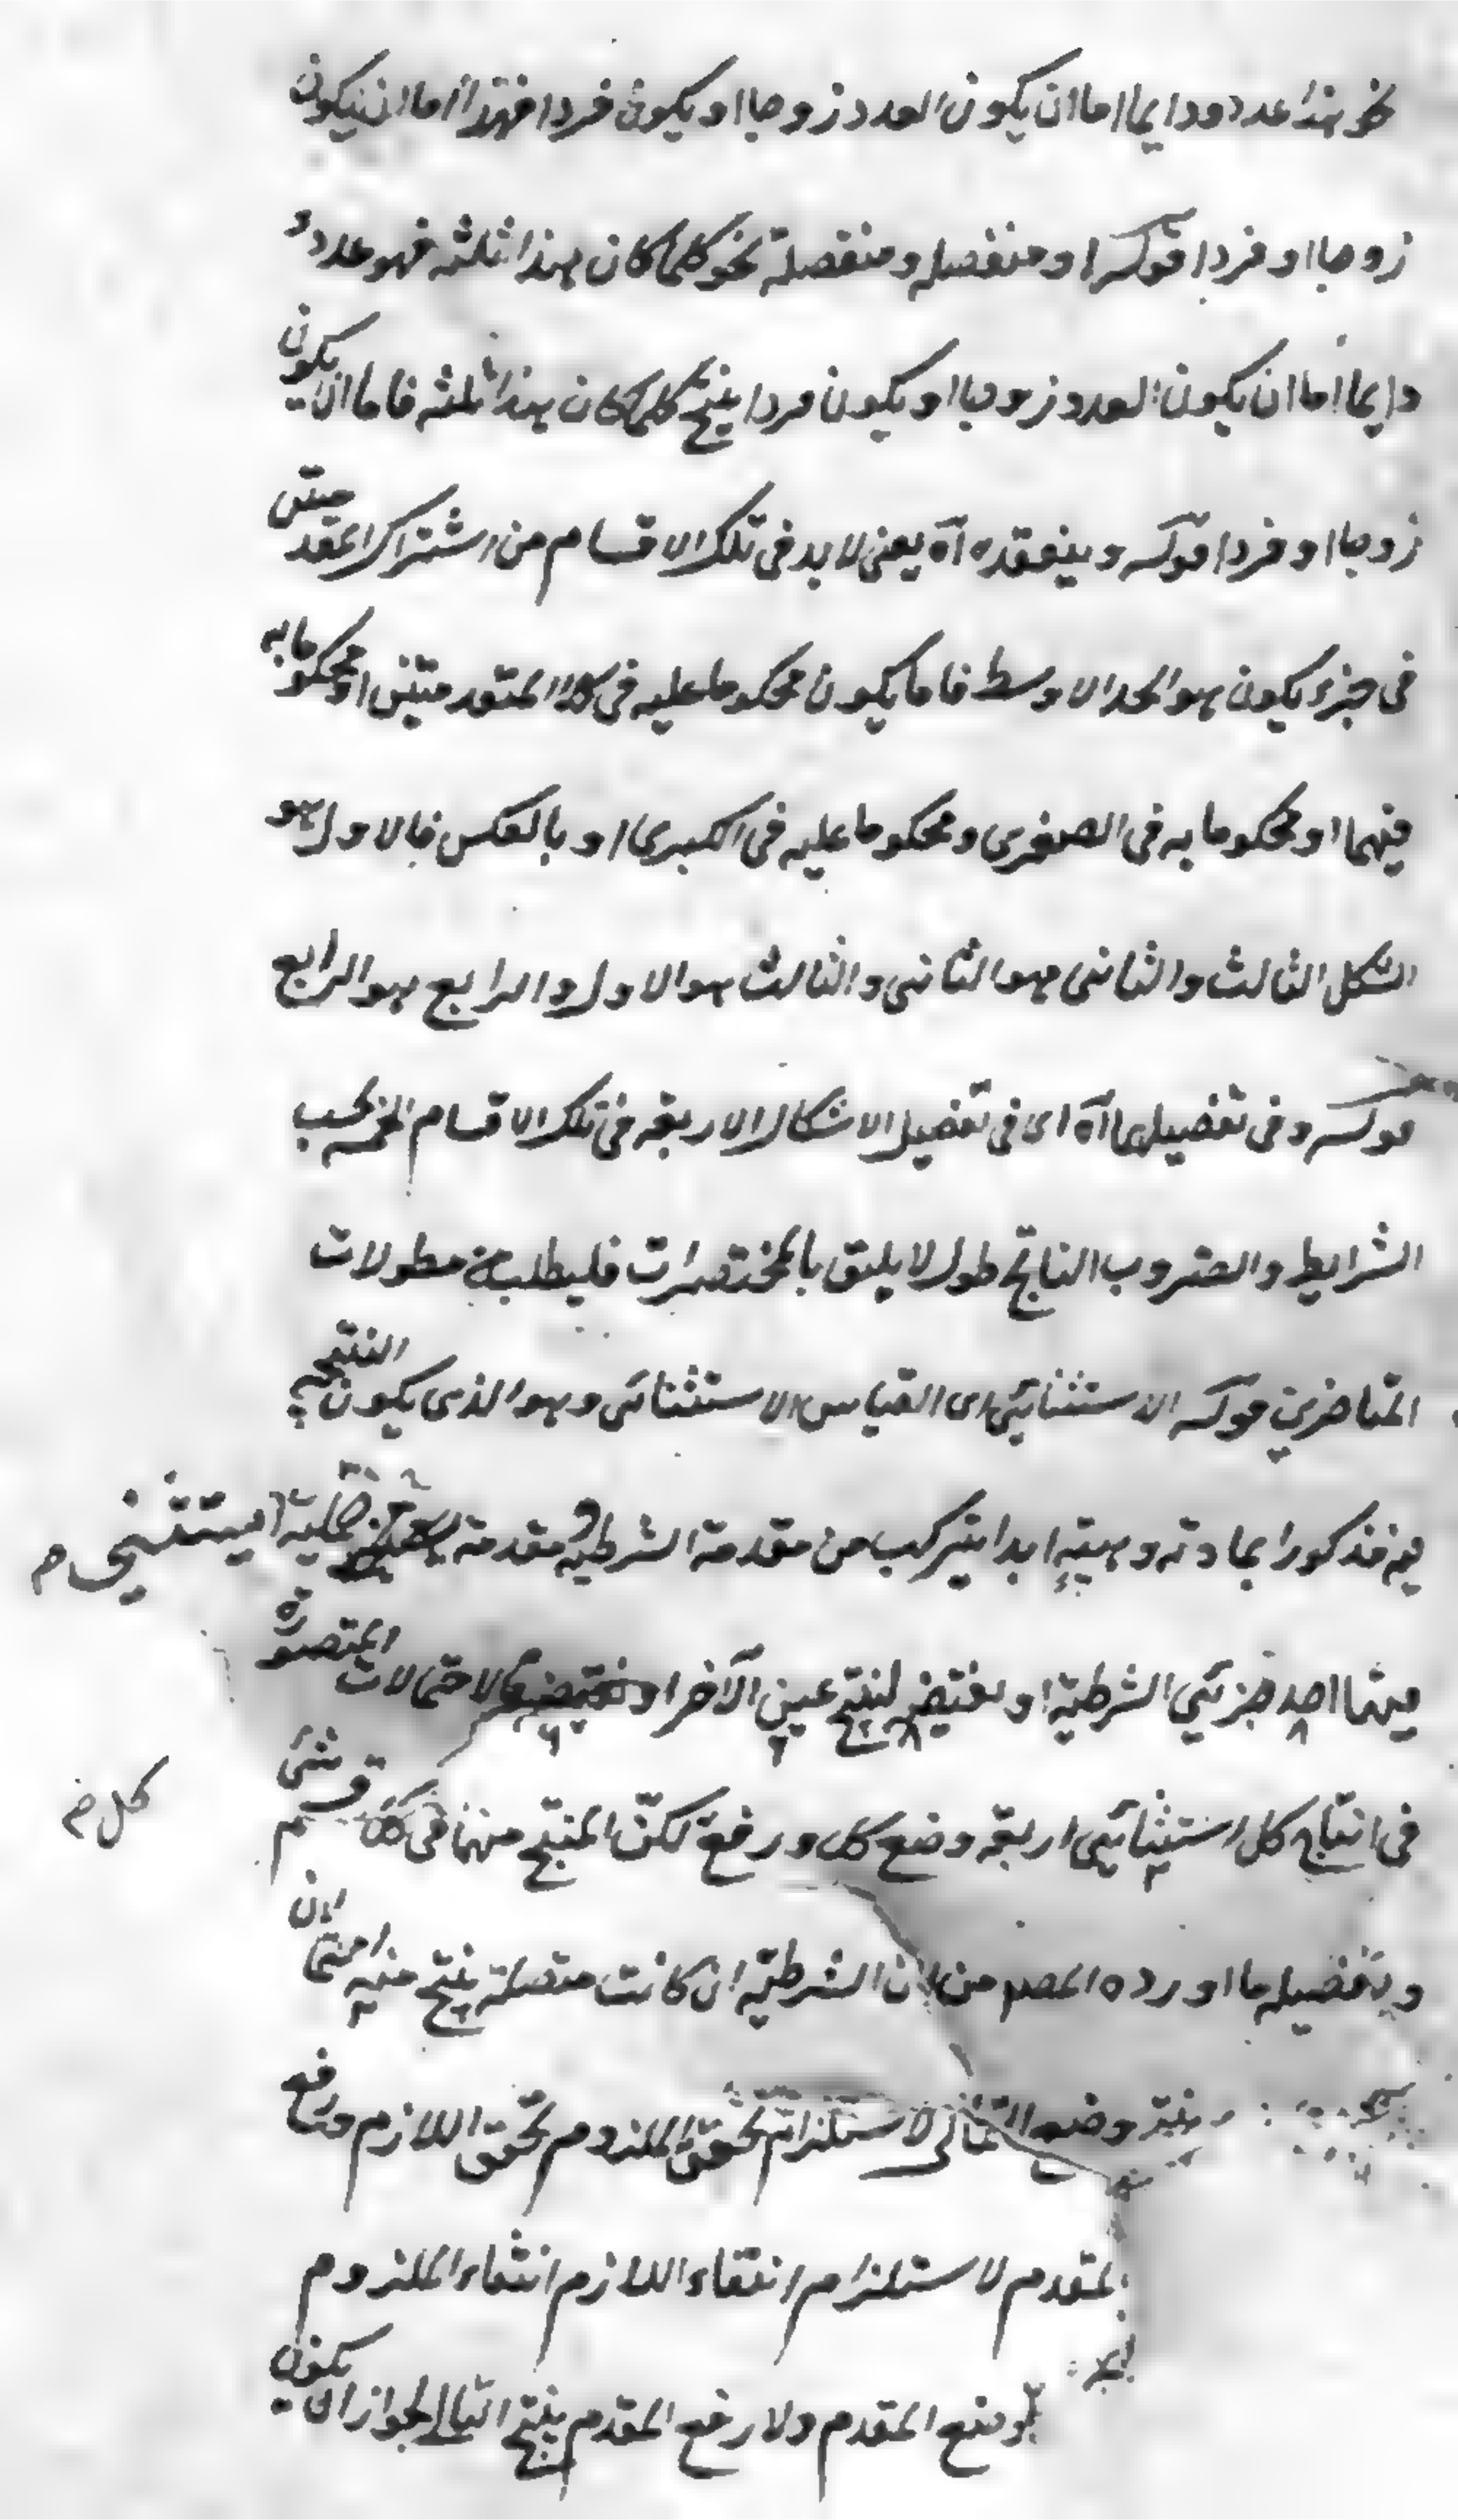 نحو هذا عدد ودايما اما ان يكون العدد زوجا او يكون فردا فهذا اما ان يكون
زوجا او فردا قوله او منفصله ومنفصلة نحو كلما كان هذا ثلثه فهو عدد و
دايما اما ان يكون العدد زوجا او يكون فردا ينتج كلما كان هذا ثلثه فاما ان يكون
زوجا او فردا قوله وينعقد ه آه يعنى لا بد فى تلك الاقسام من اشتراك المقد متين
فى جزء يكون هو الحد الاوسط فاما يكون محكوما عليه فى كلا المقدمتين او محكوما به
فيهما او محكوما به فى الصغرى ومحكوما عليه فى الكبرى او بالعكس فالاول هو
الشكل الثالث والثانى هو الثانى والثالث هو الاول والرابع هو الرابع
قوله وفى تفصيلها آه اى فى تفصيل الاشكال الاربعة فى تلك الاقسام الخمسه بحسب
الشرايط والضروب الناتج طول لا يليق بالمختصرات فليطلب من مطولات
المتاخرين قوله الاستثنائى اى القياس الاستثنائى وهو الذى يكون النتيجة
فيه مذكورا بمادته وهيئته ابدا يتركب من مقدمة الشرطيه و مقدمة حملية يستثنى م
فيها احد جزئى الشرطية او نقيضه لينتج عين الآخر او نقيضه فالاحتمالات المتصورة
فى انتاج كل استثنائى اربعة وضع كل ورفع لكن المنتج منها فى كل قسم شئ
كل م
وتفصيله ما اورده المصم من ان الشرطية ان كانت متصلة ينتج منها احتمالان
وضع التالى لاستلزام تحقق الملزوم تحقق اللازم ورفع
المقدم لاستلزام انتفاء اللازم انتفاء الملزوم
وضع المقدم ولا رفع المقدم ينتج التالى لجواز ان يكون